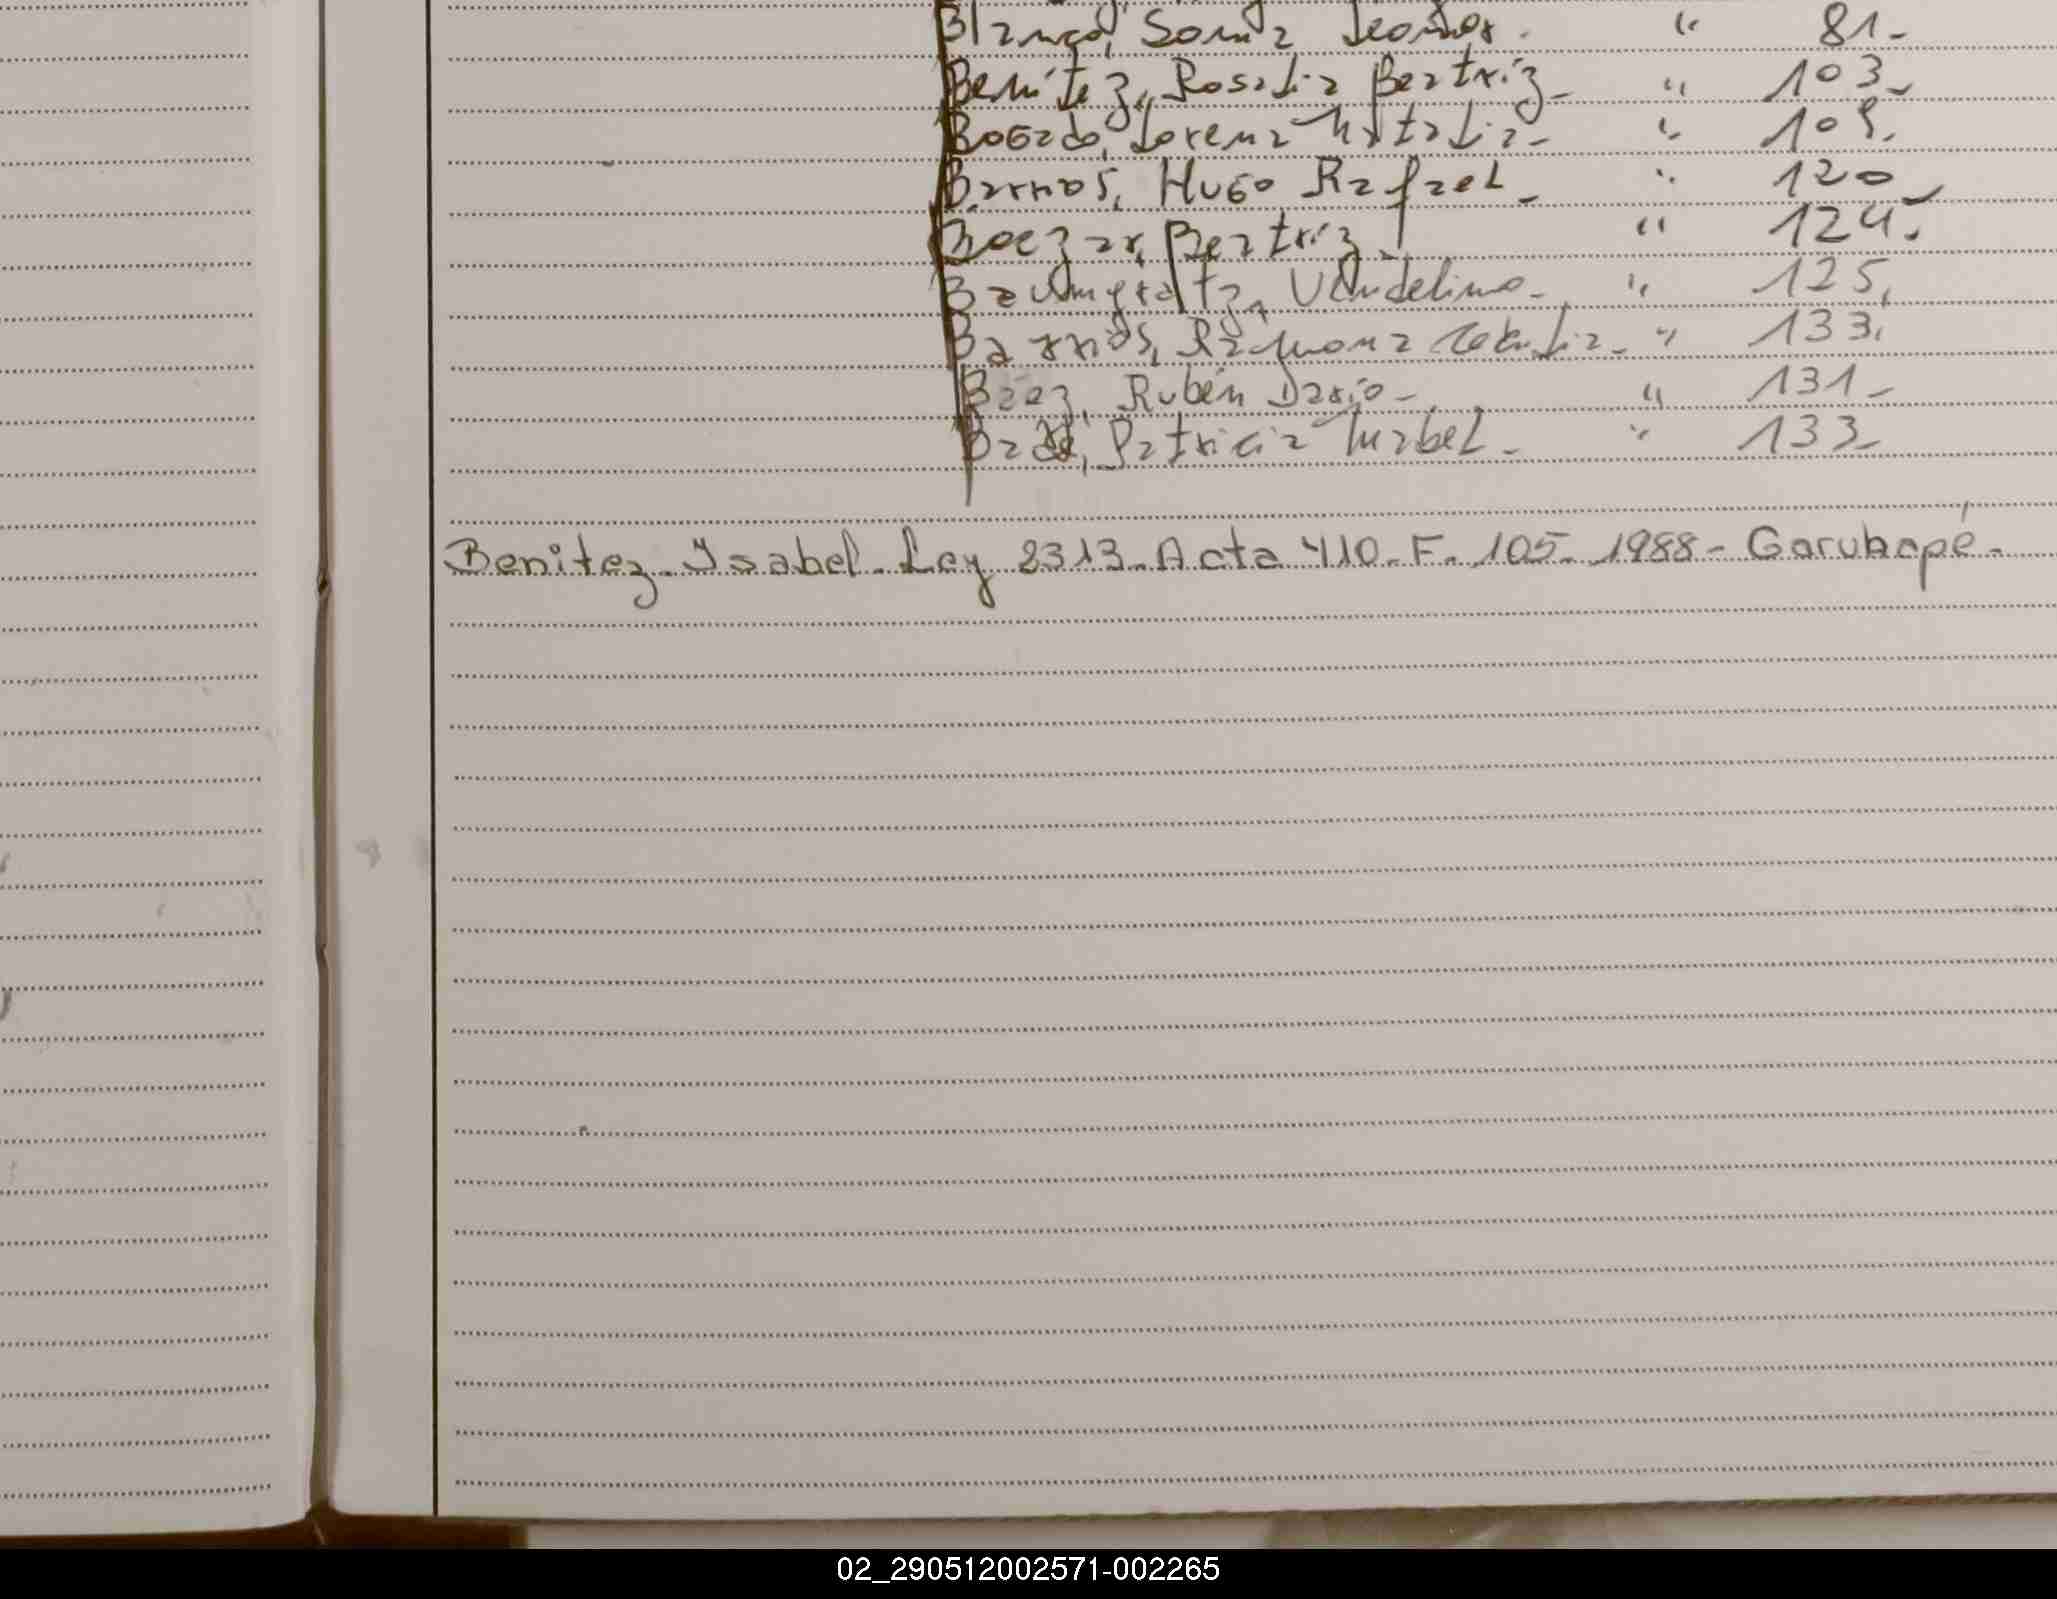 Blanco, Sonia Leonor. " 81-
Benítez, Rosalia Beatriz- " 103-
Bogado, Lorena Natalia- " 109.
Barrios, Hugo Rafael- " 120-
Boezar, Beatriz. " 124.
Baumgratz, Vendelino- " 125.
Barrios, Ramona " 133.
Baez, Rubén Dario- " 131-
Patricia Mabel- " 133-
Benitez-Ysabel-Ley 2313-Acta 410-F-105-1988-Garuhapé-
02_290512002571-002265